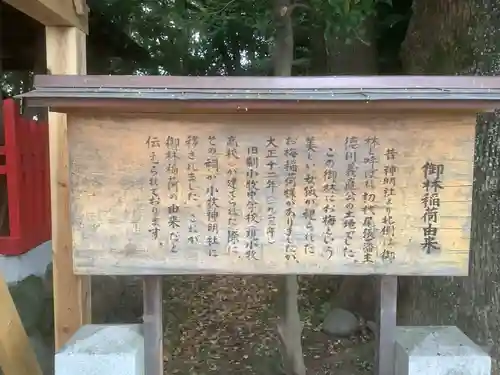 御林稲荷由来
昔神明社より北側は御
林と呼ばれ初代尾張藩主
徳川義直公の土地でした。
この御林にお梅という
美しい女狐が現られた
お梅稲荷様がありましたが
大正十二年(一九二三年)
旧制小牧中学校(現小牧
高校)が建てられた際に
その祠が小牧神明社に
移されました。これが
御林稲荷の由来だと
伝えられております。